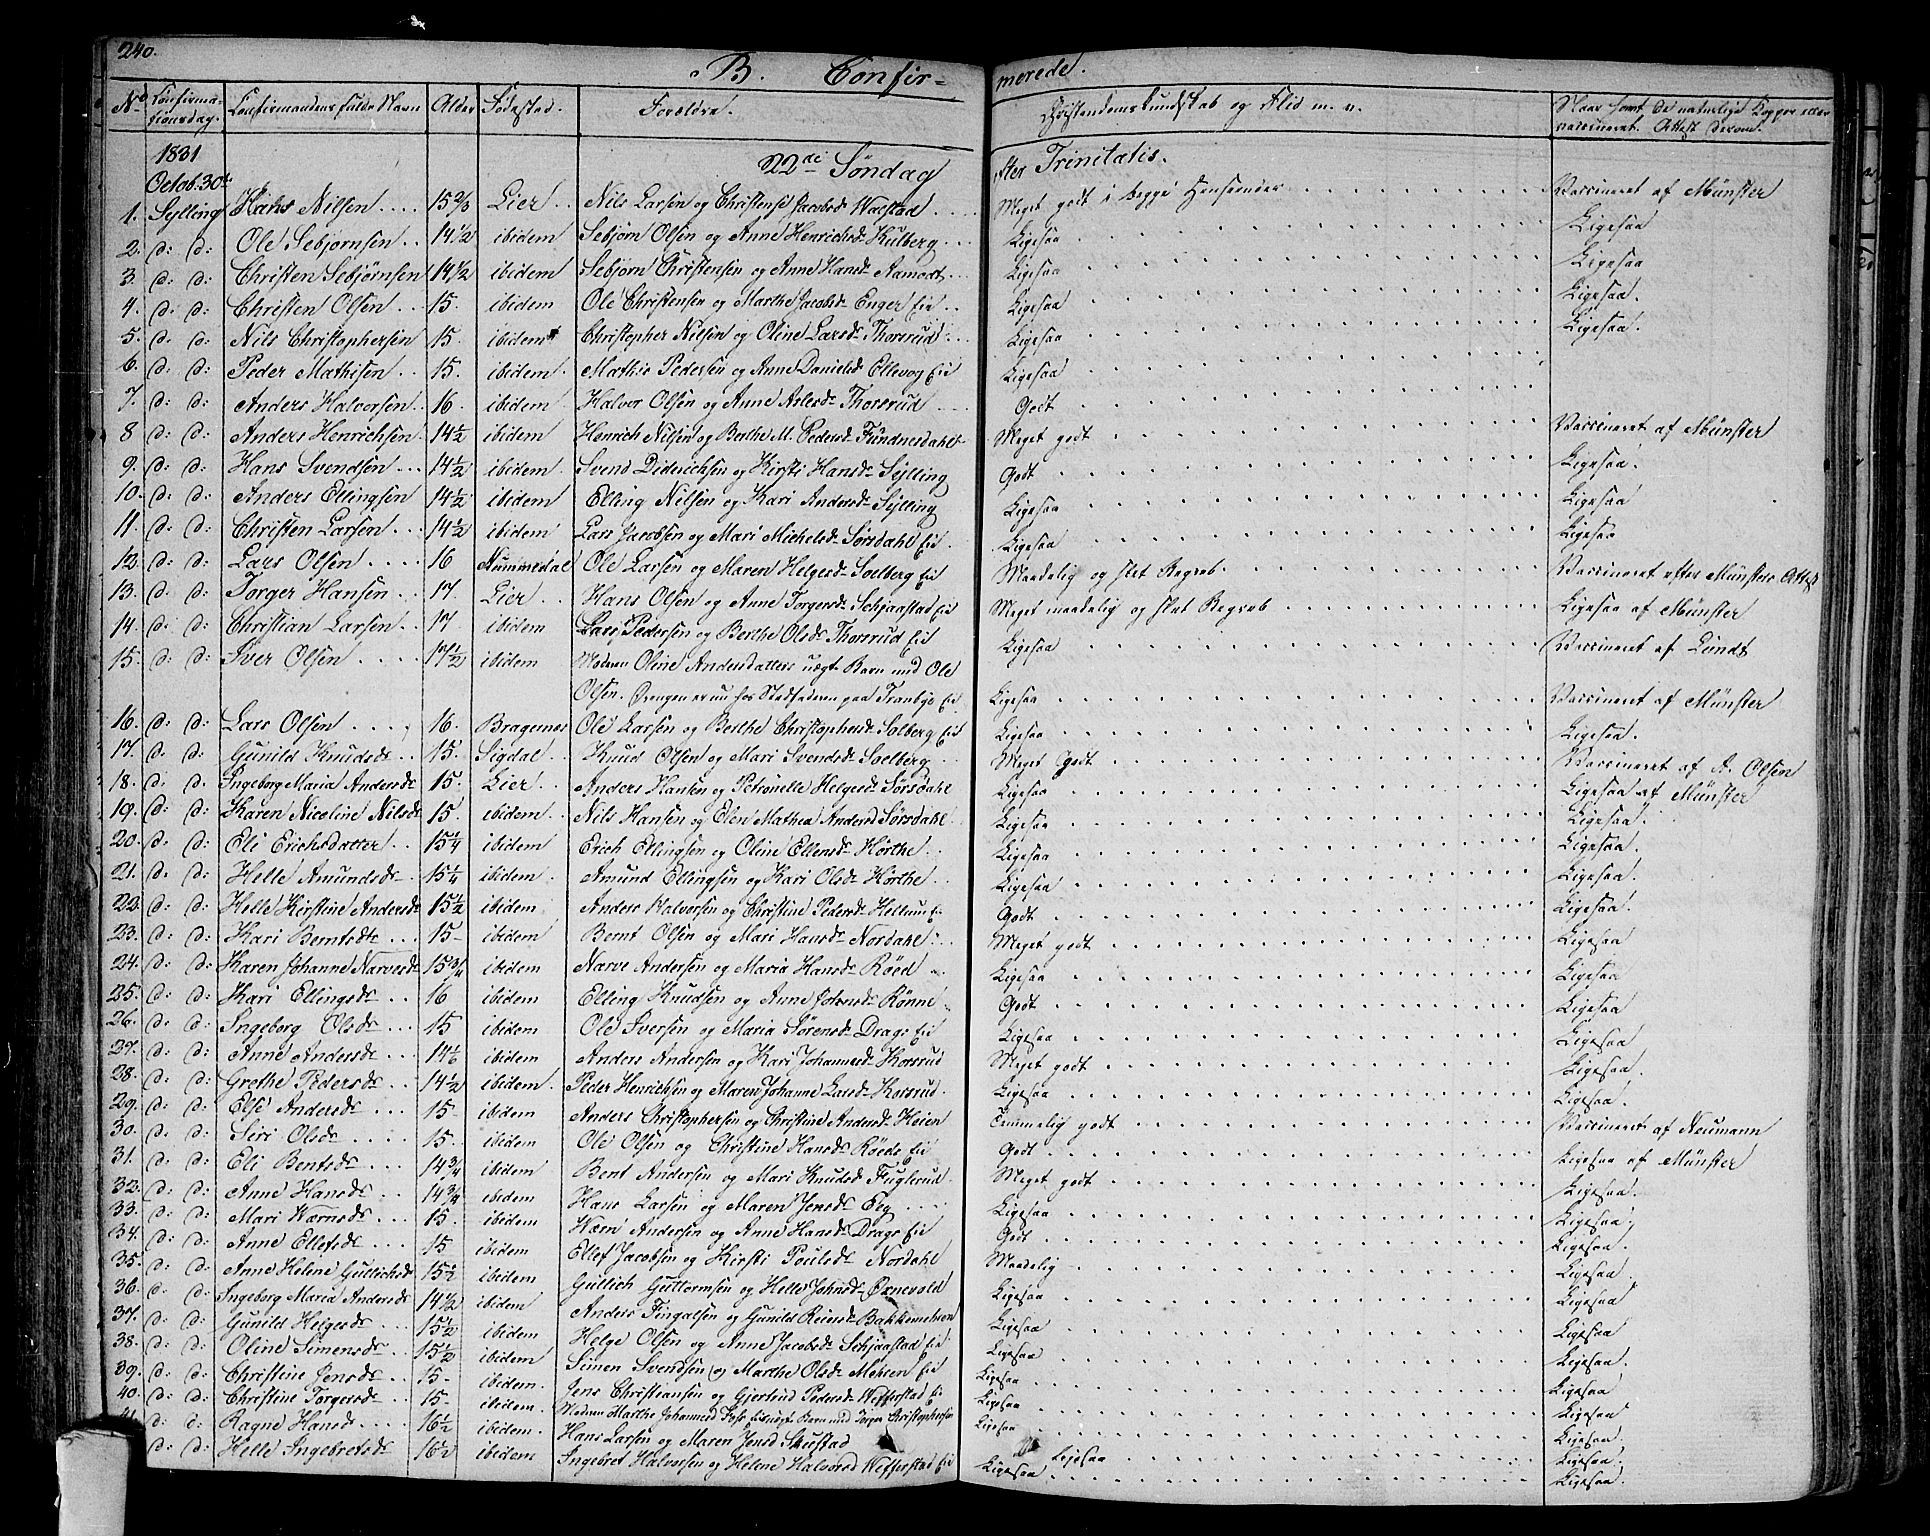 240.
B. Confir- merede.
No Confirma- tionsdag. Confirmandens fulde Navn Alder Fødestæd. Forældre. Christendomskundskab og Flid m. v. Naar havt de naturlige Kopper eller vaccineret. Attest derom.
1831 22de Søndag efter Trinitatis.
Octob. 30te
1. Sylling Hans Nilsen 15 2/3 Lier Nils Larsen og Christense Jacobsd Wæstad Meget godt i begge Henseender Vaccineret af Münster
2. d: d: Ole Sebjørnsen 14 1/2 ibidem Sebjørn Olsen og Anne Henrichsd Kulberg Ligesaa Ligesaa
3. d: d: Christen Sebjørnsen 14 1/2 ibidem Sebjørn Christensen og Anne Hansd Aamodt Ligesaa Ligesaa
4. d: d: Christen Olsen 15. ibidem Ole Christensen og Marthe Jacobsd Enger Eie Ligesaa Ligesaa.
5. d: d: Nils Christophersen 15. ibidem Christopher Nilsen og Oline Larsd Thorsrud Ligesaa Ligesaa.
6. d: d: Peder Mathisen 15. ibidem Mathis Pedersen og Anne Danielsd Ellevog Eie Ligesaa
7. d: d: Anders Halvorsen 16 ibidem Halvor Olsen og Anne Aslesd Thorsrud Godt
8 d: d: Anders Henrichsen 14 1/2 ibidem Henrich Nilsen og Berthe M. Pedersd Fundnesdahl Meget godt Vaccineret af Münster
9. d: d: Hans Svendsen 14 1/2 ibidem Svend Diderichsen og Kirsti Hansd Sylling Godt Ligesaa.
10. d: d: Anders Ellingsen 14 1/2 ibidem Elling Nilsen og Kari Andersd Sylling Ligesaa Ligesaa
11. d: d: Christen Larsen 14 1/2 ibidem Lars Jacobsen og Mari Michelsd Sørsdahl Eie Ligesaa Ligesaa
12. d: d: Lars Olsen 16 Nummedal Ole Larsen og Maren Helgesd Soelberg Eie Maadelig og slet Begreb. Vaccineret efter Münsters Attest
13. d: d: Torger Hansen 17. Lier Hans Olsen og Anne Torgersd Schjaastad Eie Meget maadelig og slet Begreb Ligesaa af Münster
14. d: d: Christian Larsen 17 ibidem Lars Pedersen og Berthe Olsd Thorsrud Eie Ligesaa Vaccineret af Lundt
15. d: d: Iver Olsen 17 1/2 ibidem Moderen Oline Andersdatters uægte Barn med Ole
Olsen. Drengen er nu hos Stedfaderen paa Tranbye Eie Ligesaa Vaccineret af Münster
16. d: d: Lars Olsen 16. Bragernes Ole Larsen og Berthe Christophersd Solberg Eie Ligesaa Ligesaa.
17. d: d: Gunild Knudsd 15. Sigdal Knud Olsen og Mari Svendsd Soelberg Meget Godt Vaccineret af A. Olsen
18. d: d: Ingeborg Maria Andersd 15. Lier Anders Hansen og Petronelle Helgesd Sørsdahl Ligesaa Ligesaa af Münster
19. d: d: Karen Nicoline Nilsd 15. ibidem Nils Hansen og Elen Mathea Andersd Sørsdahl Ligesaa Ligesaa.
20. d: d: Eli Erichsdatter 15 1/4 ibidem Erich Ellingsen og Oline Ellensd Hørthe Ligesaa Ligesaa
21. d: d: Helle Amundsd 15 1/4 ibidem Amund Ellingsen og Kari Olsd Hørthe Ligesaa Ligesaa.
22. d: d: Helle Kirstine Andersd 15 1/2 ibidem Anders Halvorsen og Christine Pedersd Hellum Eie Godt Ligesaa.
23. d: d: Kari Berntsdtr 15 ibidem Bernt Olsen og Mari Hansd Nordahl Meget godt Ligesaa
24. d: d: Karen Johanne Narvesd 15 3/4 ibidem Narve Andersen og Maria Hansd Røed Ligesaa Ligesaa
25. d: d: Kari Ellingsd 16 ibidem Elling Knudsen og Anne Johnsd Rønne Godt Ligesaa
26. d: d: Ingeborg Olsd 15 ibidem Ole Iversen og Maria Sørensd Drags Eie Ligesaa Ligesaa
27. d: d: Anne Andersd 14 1/2 ibidem Anders Andersen og Kari Johannesd Korsrud Meget godt Ligesaa.
28. d: d: Grethe Pedersd 14 1/2 ibidem Peder Henrichsen og Maren Johanne Larsd Korsrud Ligesaa Ligesaa.
29. d: d: Else Andersd 15 ibidem Anders Christophersen og Christine Andersd Heien Temmelig godt Vaccineret af Neumann
30. d: d: Siri Olsd 15. ibidem Ole Olsen og Christine Hansd Røeds Eie Godt Ligesaa af Münster
31. d: d: Eli Bentsd 14 3/4 ibidem Bent Andersen og Mari Knudsd Fuglerud Meget godt Ligesaa.
32. d: d: Anne Hansd 14 3/4 ibidem Hans Larsen og Maren Jensd Eeg Ligesaa Ligesaa.
33. d: d: Mari Wærnsd 15. ibidem Wærn Andersen og Anne Hansd Drags Eie Godt Ligesaa.
34. d: d: Anne Ellefsd 15 ibidem Ellef Jacobsen og Kirsti Poulsd Nordahl Maadelig Ligesaa
35. d: d: Anne Helene Gullichsd 15 1/2 ibidem Gullich Guttormsen og Helle Johnsd Ørnevold Ligesaa Ligesaa
36. d: d: Ingeborg Maria Andersd 14 1/2 ibidem Anders Fingalsen og Gunild Reiersd Bakkemehren Ligesaa Ligesaa
37. d: d: Gunild Helgesd 15 1/2 ibidem Helge Olsen og Anne Jacobsd Schjaastad Eie Ligesaa Ligesaa.
38. d: d: Oline Simensd 15 1/2 ibidem Simen Svendsen og Marthe Olsd Mehren Eie Ligesaa Ligesaa
39. d: d: Christine Jensd 15. ibidem. Jens Christiansen og Gjertrud Pedersd Wefferstad Eie Ligesaa Ligesaa.
40. d: d: Christine Torgersd 15. ibidem. Moderen Marthe Johannesd Foss Eie uægte Barn med Torger Christophersen Ligesaa Ligesaa.
41 d: d: Ragne Hansd 16 1/2 ibidem. Hans Larsen og Maren Jensd Skustad Ligesaa Ligesaa
d: d: Helle Ingebretsd 16 1/2 ibidem Ingebret Halvorsen og Helene Halvorsd Wefferstad Eie Ligesaa Ligesaa.